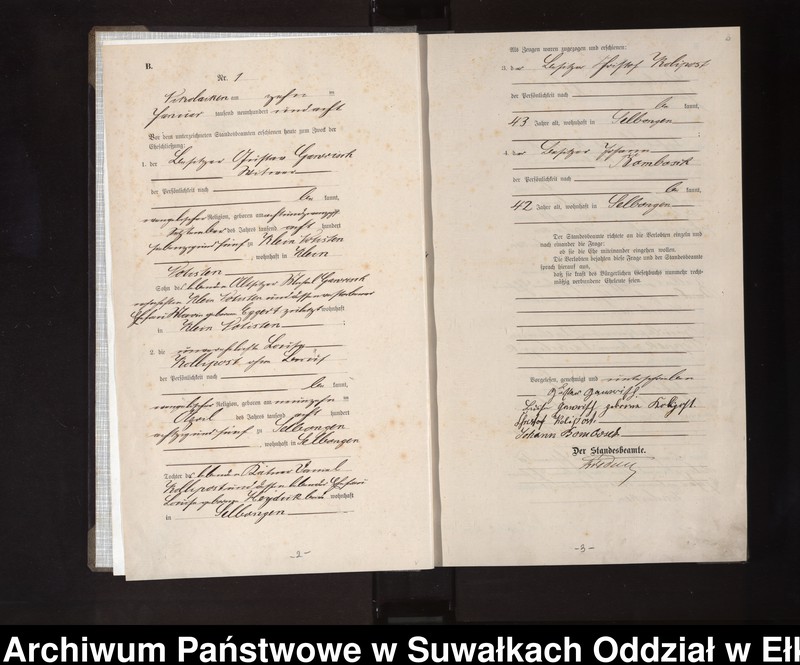 B.
Nr. 1
Nikolaiken am zehn ten
Januar tausend neunhundert und acht
Vor dem unterzeichneten Standesbeamten erschienen heute zum Zweck der
Eheschließung:
1. der Besitzer Gustav Gawrisch
Witwer
der Persönlichkeit nach
be kannt,
evangelischer Religion, geboren am achtundzwanzigsten
September des Jahres tausend acht hundert
siebenzig und fünf zu Klein Notisten
, wohnhaft in Klein
Notisten
Sohn des lebenden Altsitzer Michael Gawrisch
Klein Notisten und dessen verstorbener
Ehefrau geborene Eggert zuletzt wohnhaft
in Klein Notisten
2. die unverehelichte Louise
Kollipost ohne Beruf
der Persönlichkeit nach
be kannt,
evangelischer Religion, geboren am neunzehn ten
April des Jahres tausend acht hundert
achtzig und fünf zu Selbongen
, wohnhaft in Selbongen
Tochter des lebenden Kätner Samuel
Kollipost und dessen lebender Ehefrau
Louise geborene Heydeck beide wohnhaft
in Selbongen
-2-
Als Zeugen waren zugezogen und erschienen:
3. der Besitzer Christof Kolipost
der Persönlichkeit nach
be kannt,
43 Jahre alt, wohnhaft in Selbongen
4. der Besitzer Johann
Kombosch
der Persönlichkeit nach
be kannt,
42 Jahre alt, wohnhaft in Selbongen
Der Standesbeamte richtete an die Verlobten einzeln und
nach einander die Frage:
ob sie die Ehe miteinander eingehen wollen.
Die Verlobten bejahten diese Frage und der Standesbeamte
sprach hierauf aus,
daß sie kraft des Bürgerlichen Gesetzbuchs nunmehr recht-
mäßig verbundene Eheleute seien.
Vorgelesen, genehmigt und unterschrieben
Gustav Gawrisch
Luise Gawrisch geborene Kolipost
Christof Kolipost
Johann Kombosch
Der Standesbeamte.
-3-
Archiwum Państwowe w Suwałkach Oddział w Ełk